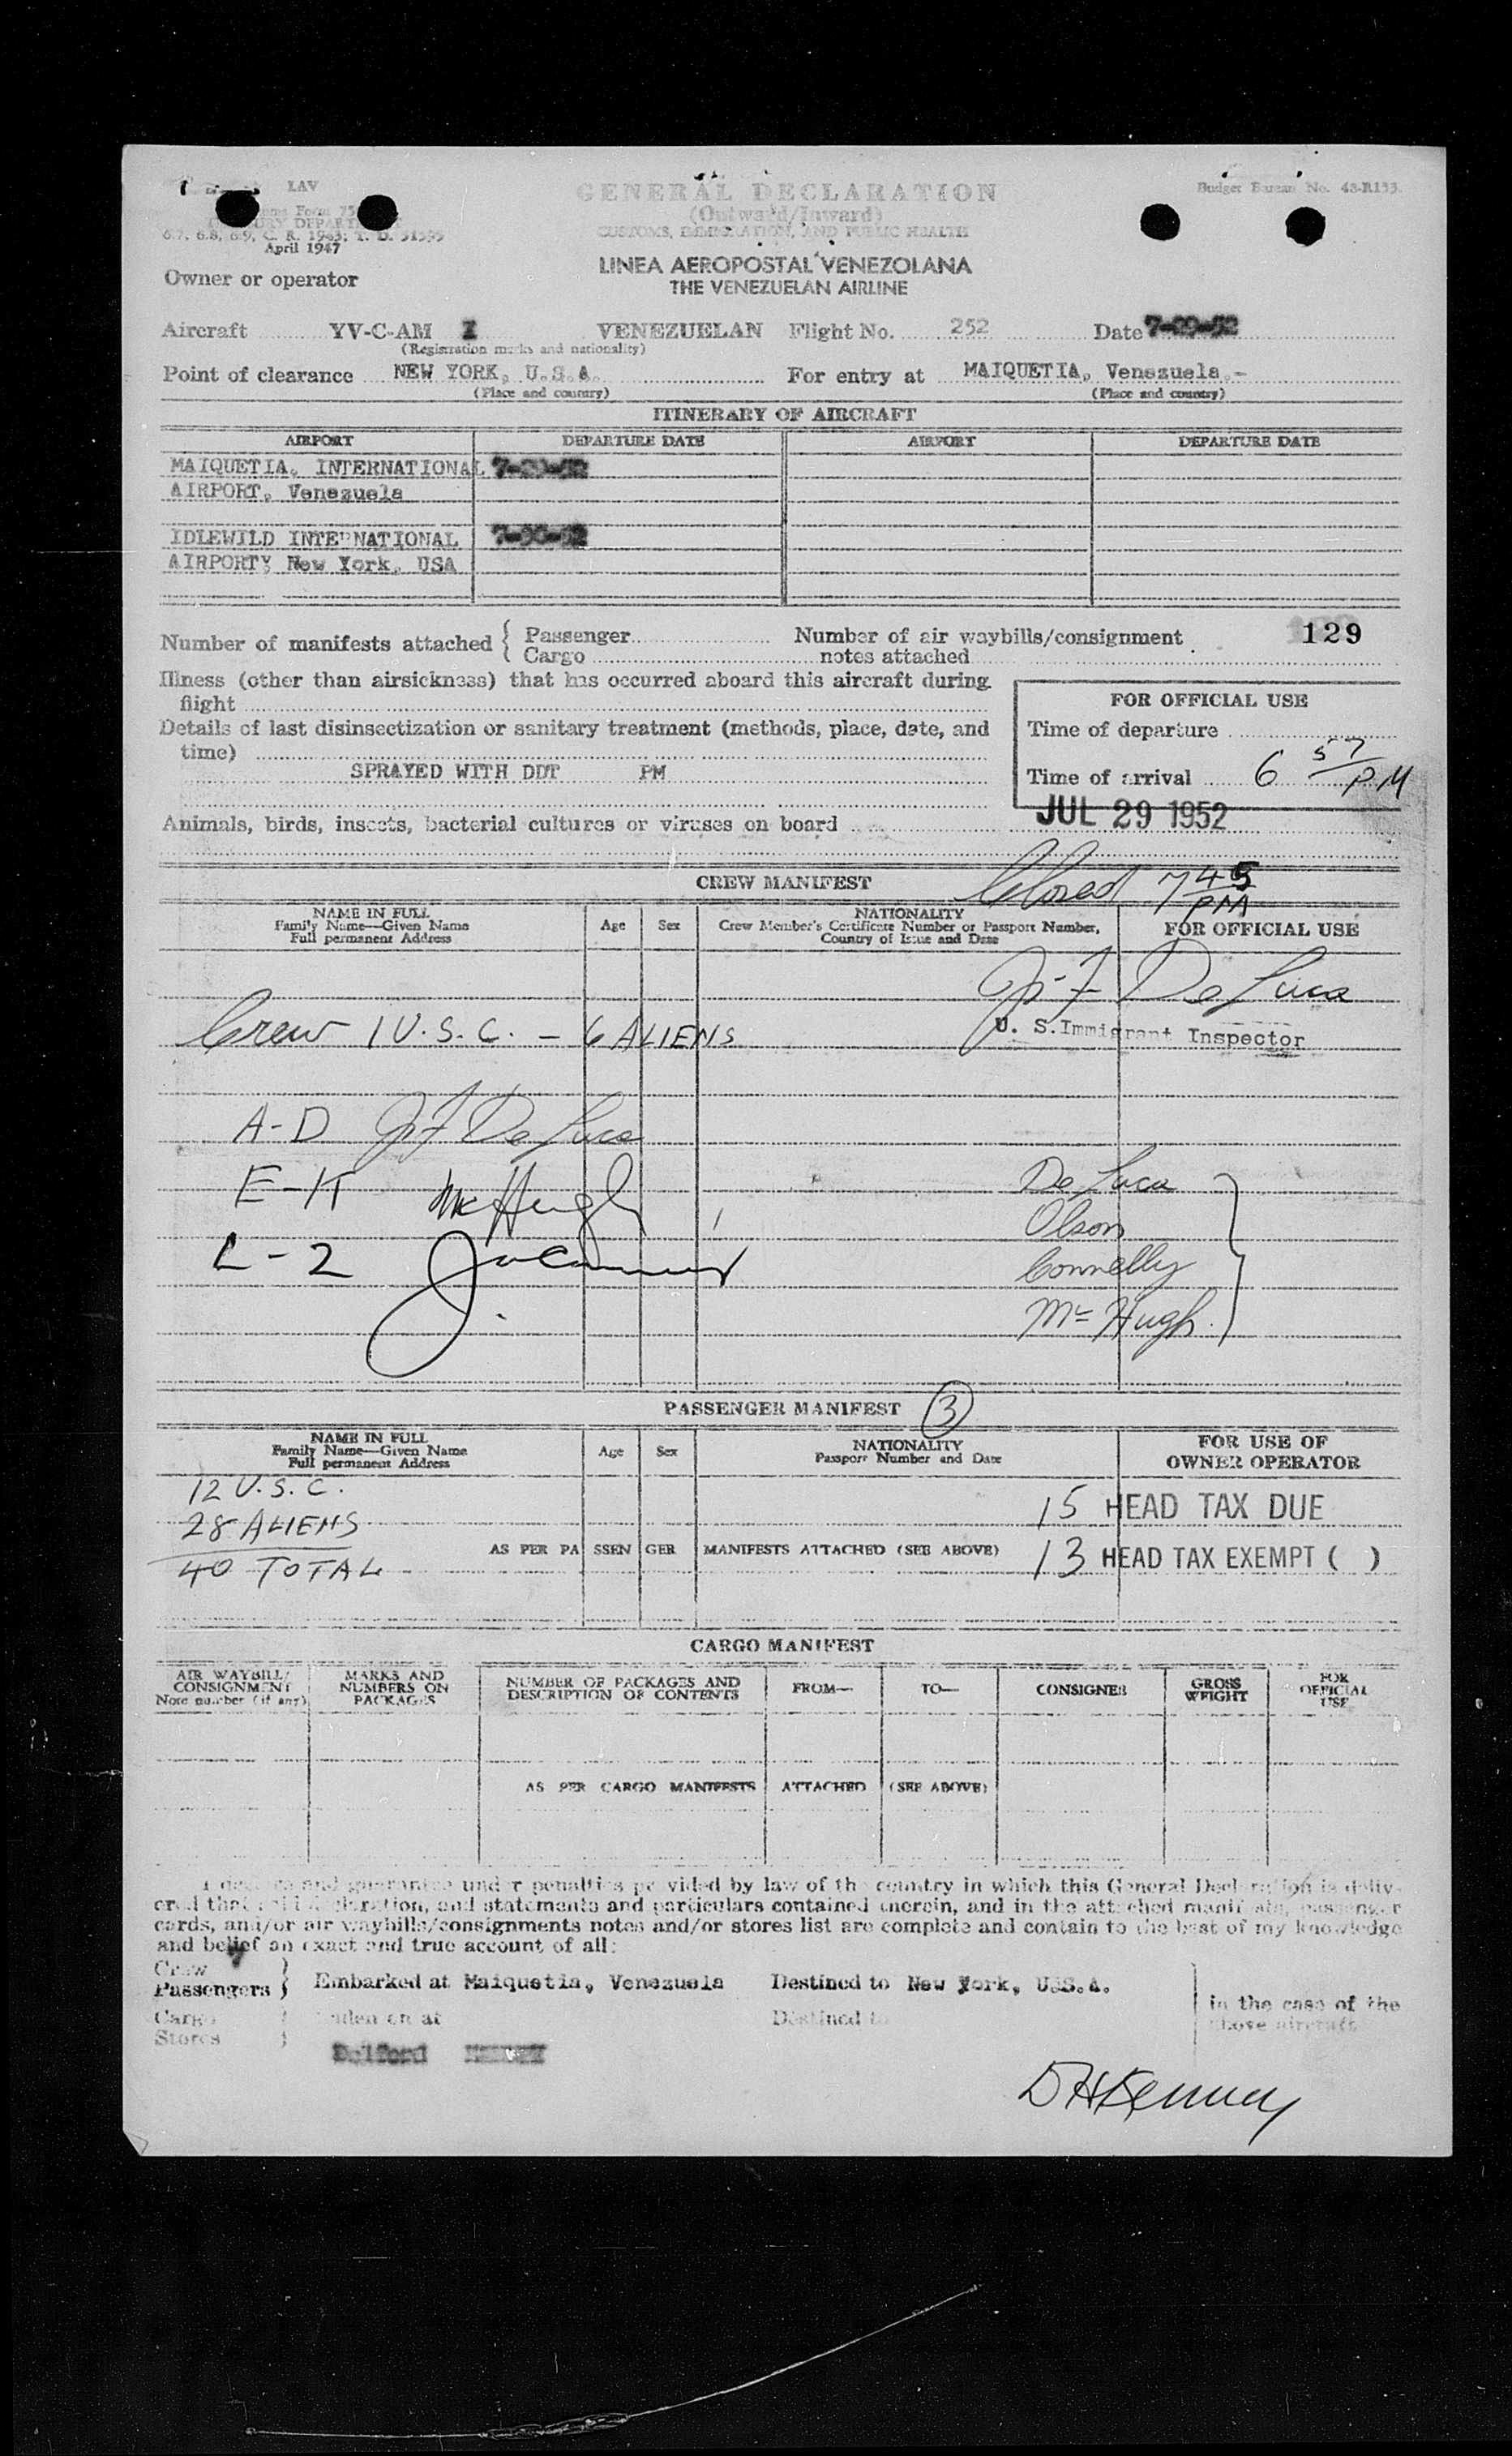 LAV
GENERAL DECLARATION
Budget Bureau No. 48-R133.
(Outward/Inward)
Form 75
CUSTOMS, IMMIGRATION, AND PUBLIC HEALTH
6.7, 6.8, 6.9, C. R. 1943; T. D. 51595
April 1947
LINEA AEROPOSTAL VENEZOLANA
THE VENEZUELAN AIRLINE
Owner or operator
Aircraft YV-C-AM VENEZUELAN Flight No. 252 Date 7-29-52
(Registration marks and nationality)
Point of clearance NEW YORK, U.S.A. For entry at MAIQUETIA, Venezuela.-
(Place and country) (Place and country)
ITINERARY OF AIRCRAFT
AIRPORT DEPARTURE DATE AIRPORT DEPARTURE DATE
MAIQUETIA, INTERNATIONAL
AIRPORT, Venezuela
IDLEWILD INTERNATIONAL
AIRPORT, New York, USA
129
Number of manifests attached { Passenger Number of air waybills/consignment
Cargo notes attached
Illness (other than airsickness) that has occurred aboard this aircraft during
flight
FOR OFFICIAL USE
Details of last disinsectization or sanitary treatment (methods, place, date, and
time)
Time of departure
SPRAYED WITH DDT PM
Time of arrival 6 57 PM
JUL 29 1952
Animals, birds, insects, bacterial cultures or viruses on board
CREW MANIFEST
Closed 7 45 PM
NAME IN FULL
Family Name—Given Name
Full permanent Address
Age Sex
NATIONALITY
Crew Member's Certificate Number or Passport Number,
Country of Issue and Date
FOR OFFICIAL USE
J. F. De Luca
U. S. Immigrant Inspector
Crew 1 U.S.C. - 6 ALIENS
A-D J F De Luca
E-K McHugh
L-Z
De Luca
Olson
Connelly
McHugh.
PASSENGER MANIFEST 3
NAME IN FULL
Family Name—Given Name
Full permanent Address
Age Sex
NATIONALITY
Passport Number and Date
FOR USE OF
OWNER OPERATOR
12 U.S.C.
28 ALIENS
40 TOTAL
15 HEAD TAX DUE
AS PER PASSENGER MANIFESTS ATTACHED (SEE ABOVE)
13 HEAD TAX EXEMPT ( )
CARGO MANIFEST
AIR WAYBILL/
CONSIGNMENT
Note number (if any)
MARKS AND
NUMBERS ON
PACKAGES
NUMBER OF PACKAGES AND
DESCRIPTION OF CONTENTS
FROM— TO— CONSIGNEE
GROSS
WEIGHT
FOR
OFFICIAL
USE
AS PER CARGO MANIFESTS ATTACHED (SEE ABOVE)
I declare and guarantee under penalties provided by law of the country in which this General Declaration is deliv-
ered that declaration, and statements and particulars contained therein, and in the attached manifests, passenger
cards, and/or air waybills/consignments notes and/or stores list are complete and contain to the best of my knowledge
and belief an exact and true account of all:
Crew
Passengers } Embarked at Maiquetia, Venezuela Destined to New York, U.S.A.
in the case of the
above aircraft
Cargo
Stores } Laden on at Destined to
DHKenney